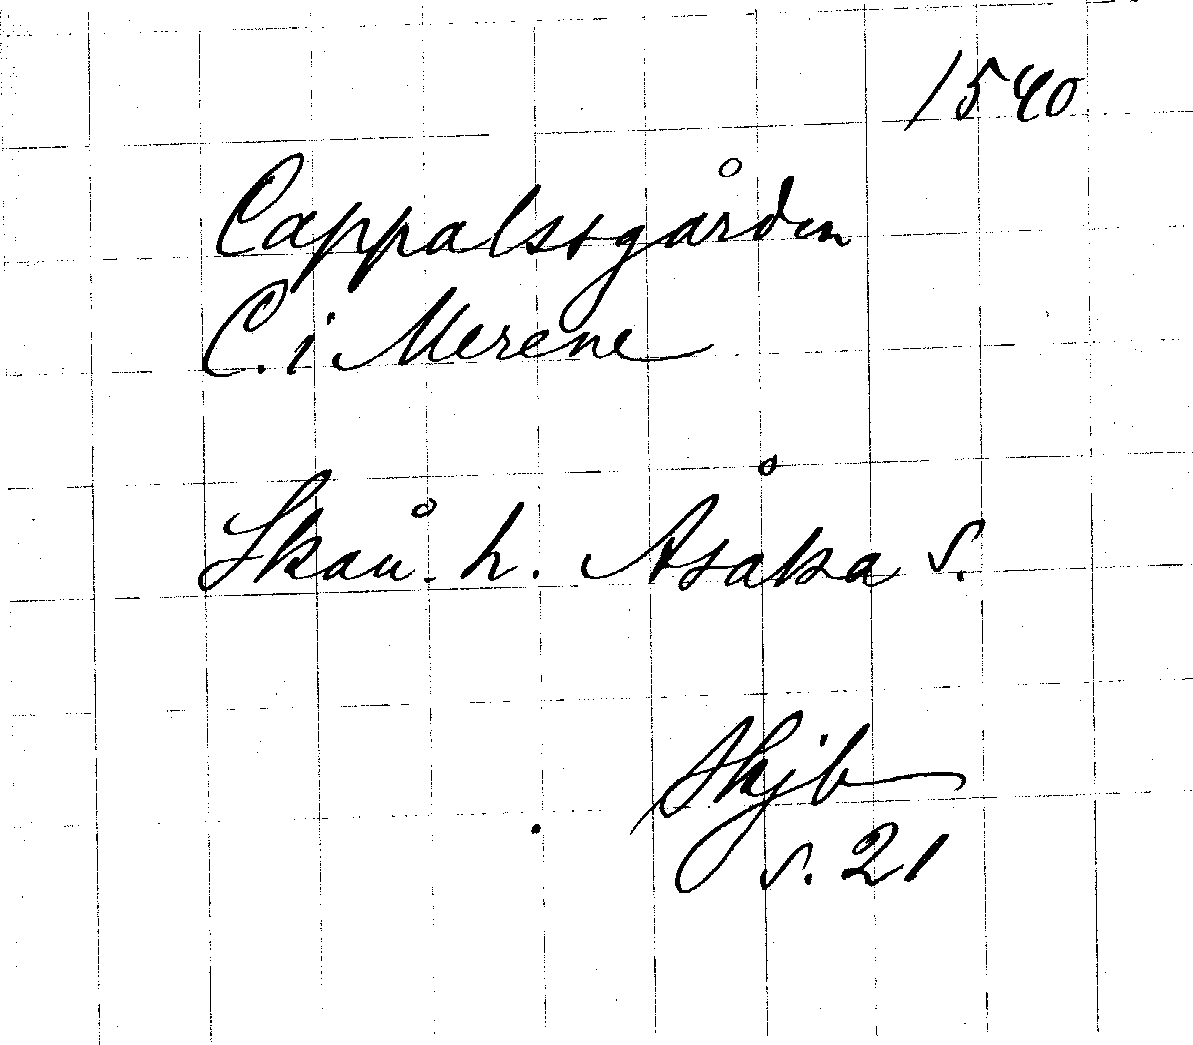 1540
Cappalssgården
C. i Merene
Skån. h. Åsaka s.
Skjb
s. 21